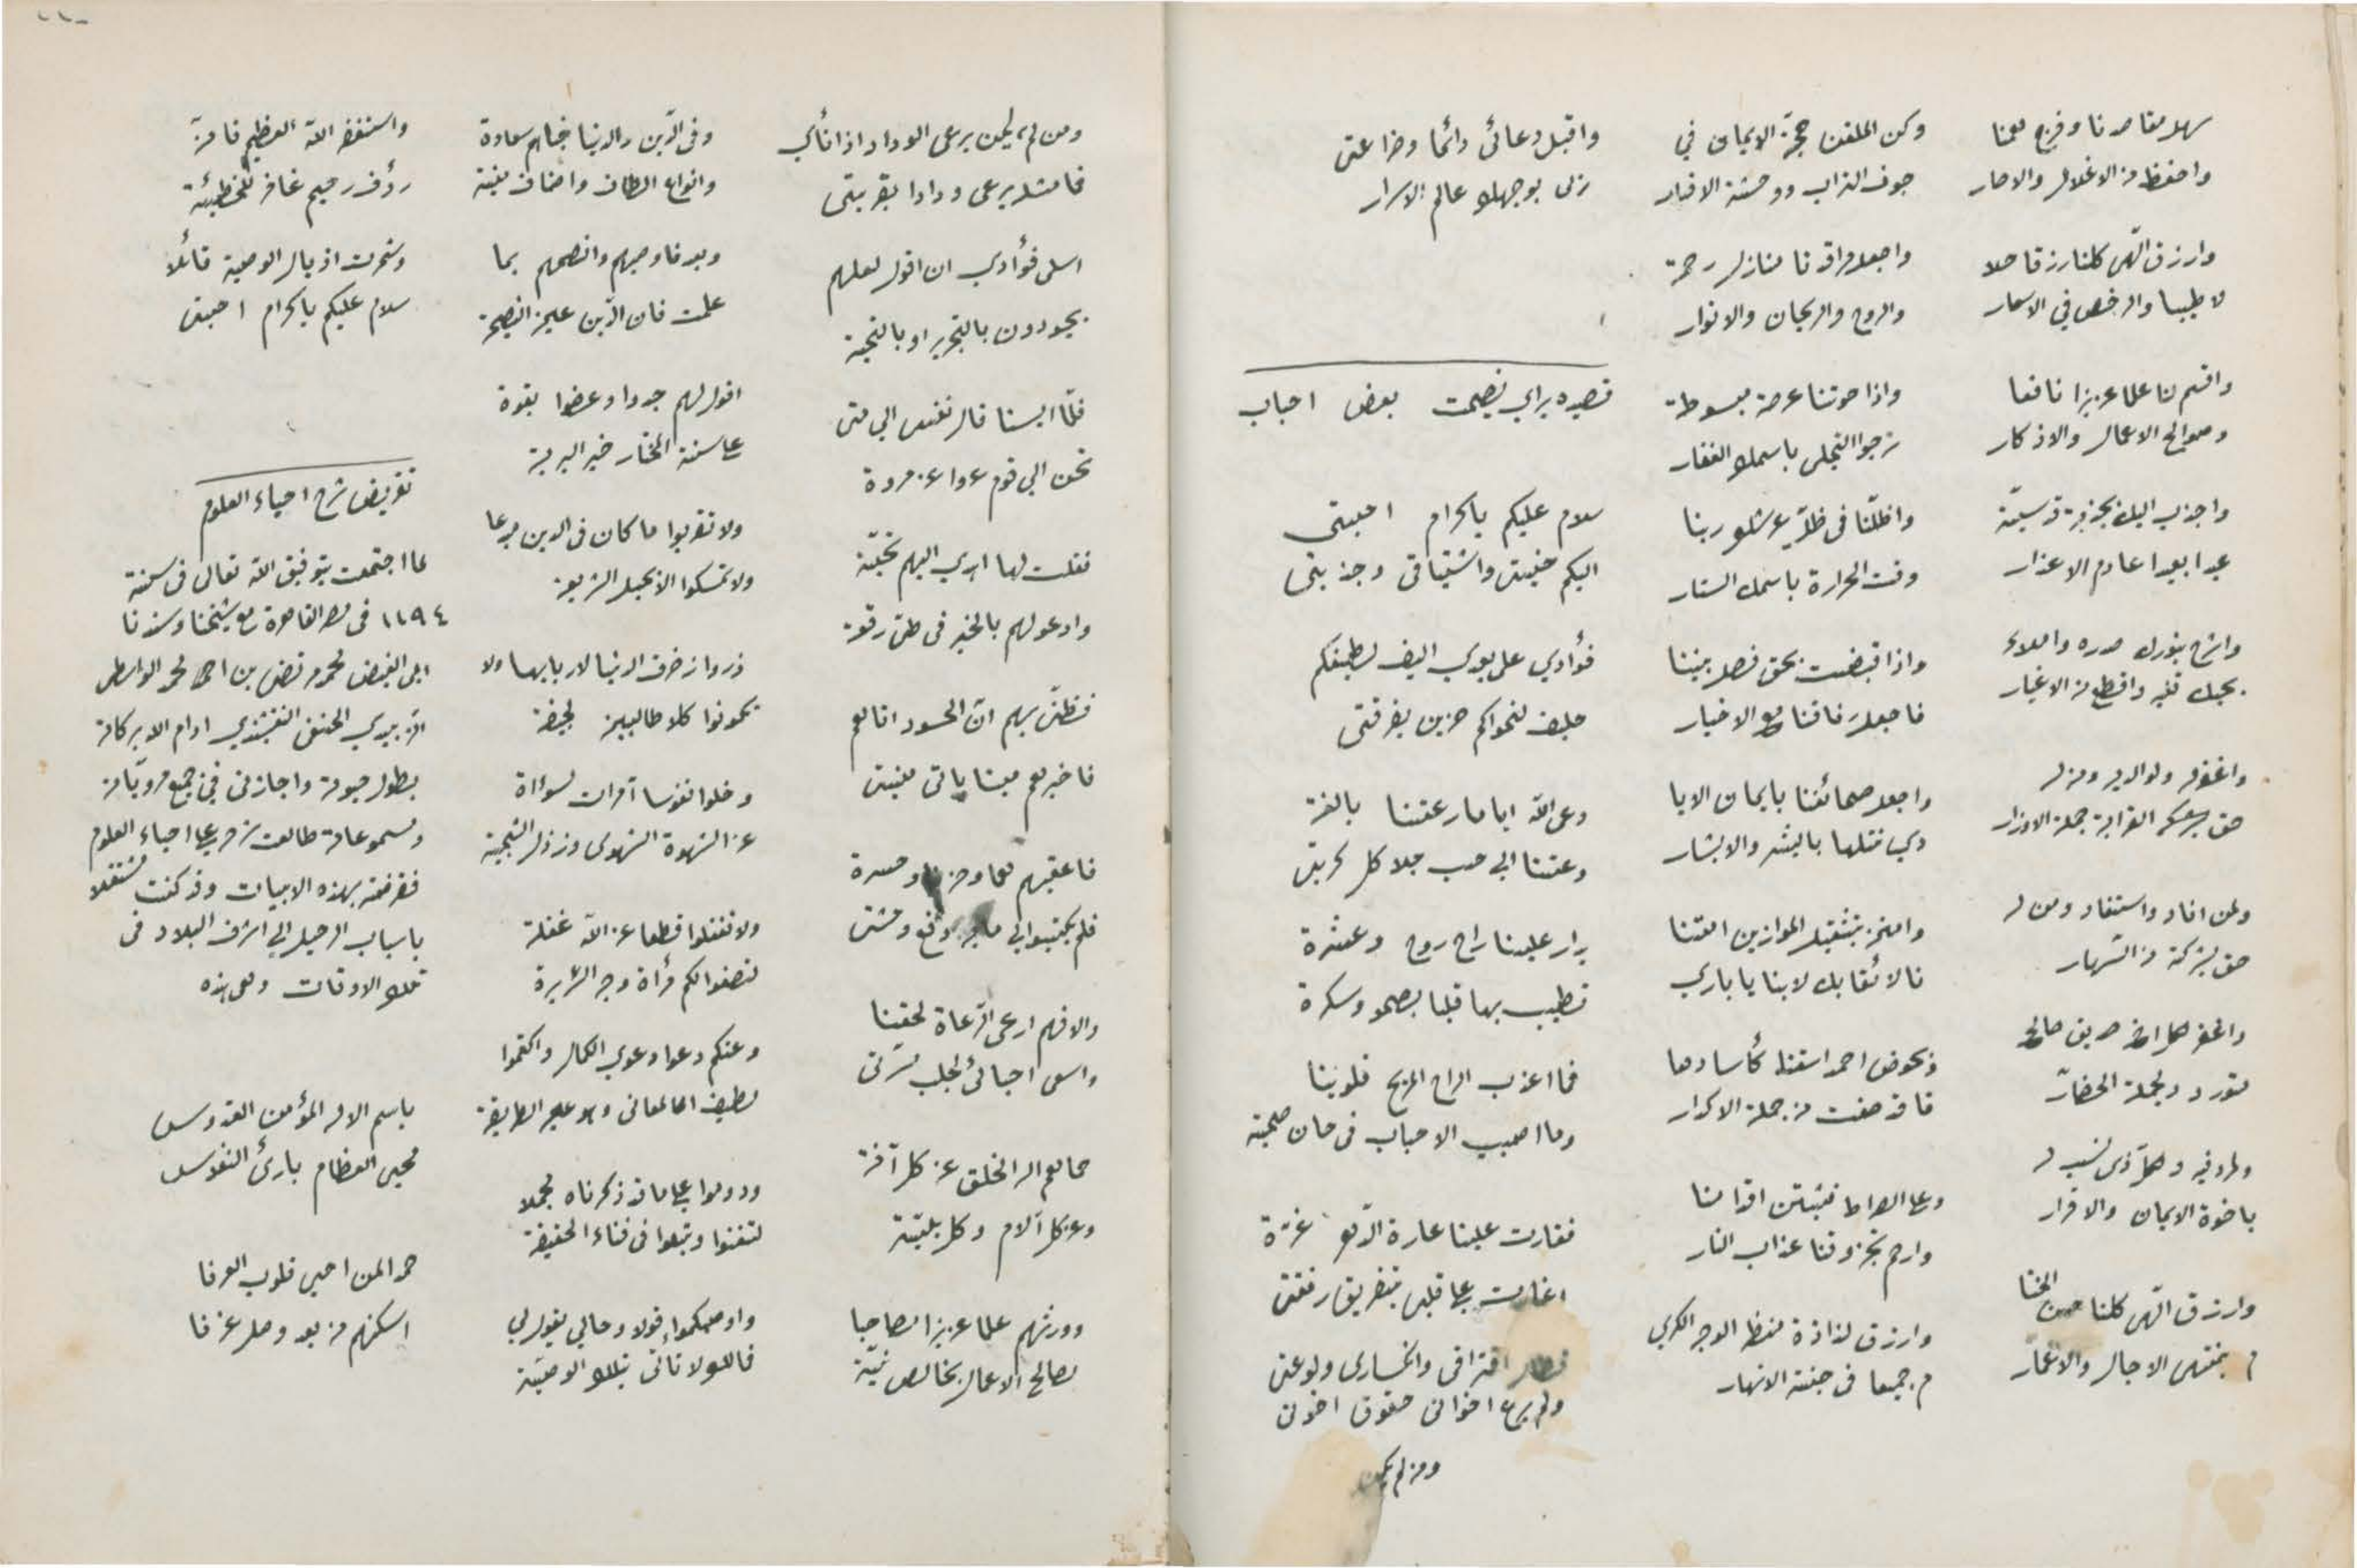 سهل مقاصدنا وفرج همنا
واحفظ من الاغلال والاصار
وارزق الهى كلنا رزقا حلا
لا طيبا والرخص في الاسعار
واقسم لنا علما عزيزا نافعا
وصوالح الاعمال والاذكار
واجذب اليك بجذبة قدسية
عبدا بعيدا عادم الاعذار
واشرح بنورك صدره واملاء
بحبك قلبه واقطع من الاغيار
واغفر له ولوالديه ومن له
حق القرابة جملة الاوزار
ولمن افاد واستفاد ومن له
حق
واغفر لكل اخ صديق صالح
ولجملة الحضار
ولوالديه وكل ذى نسب له
باخوة الايمان والاقرار
وارزق الهى كلنا حسن الختا
م بمنتهى الاجال والاعمار
وكن الملقن حجة الايمان في
جوف التراب ووحشة الاقبار
واجعل مراقدنا منازل رحمة
والروح والريحان والانوار
واذا حوتنا عرصة مبسوطة
نرجوا التجلى باسمك الغفار
واظلنا فى ظل عرشك ربنا
وقت الحرارة باسمك الستار
واذا قبضت بحق فصل بيننا
فاجعل رفاقنا مع الاخيار
واجعل صحائفنا بايمان الايا
دي نقلها بالبشر والابشار
وامنن بتثقيل الموازين امتنا
نا لا نقابلك لابنا يا باري
من حوض احمد اسقنا كأسا دها
قا قد صفت من جملة الاكدار
وعلى الصراط فثبتن اقدامنا
وارحم بحرز وقنا عذاب النار
وارزق لذاذة منظر الوجه الكري
م جميعا فى جنة الانهار
واقبل دعائى دائما وضراعتى
بوجهك عالم الاسرار
قصيده براي نصيحت بعض احباب
سلام عليكم يا كرام احبتى
اليكم حنينى واشتياقى وجذبتى
فؤادي على بعدي اليف لطيفكم
حليف لنجواكم حزين بفرقتى
رعى الله اياما رعتنا بالفة
دعتنا الى حب جلا كل كربتى
يدار علينا راح روح وعشرة
تطيب بها قلبا بصحو وسكرة
فما اعذب الراح المريح قلوبنا
وما اطيب الاحباب فى حان صحبة
فغارت علينا عادة الدهر غرة
اغارت على قلبى بتفريق رفقتى
فطال افتراقى وانكسارى ولوعتى
ولم يرع اخوانى حقوق اخوتى
ومن لم يكن
ومن لم يكن يرعى الوداد اذا نأى
فما مثله يرعى ودادا بقربتى
اسلى فؤادي ان اقول لعلهم
يجودون بالتحرير او بالتحية
فلما ايسنا قال نفسى الى متى
تحن الى قوم عدوا عن مودة
فقلت لها اهدي اليهم تحية
وادعو لهم بالخير فى طى رقعة
فظنى بهم ان الحسود اتالهم
فاخبرهم عنا باتى منيتى
فاعقبهم هما وحزنا وحسرة
فلم يكتبوا لى
والا فهم ارعى الرعاة لحقنا
واسعى احبائى لجلب مسرتى
حماهم اله الخلق عن كل آفة
وعن كل آلام وكل بلية
وورثهم علما عزيزا مصاحبا
لصالح الاعمال بخالص نية
وفى الدين والدنيا حباهم سعادة
وانواع الطاف واصناف منية
وبعد فاوصيهم وانصحهم بما
علمت فان الدين عين النصيحة
اقول لهم جدوا وعضوا بقوة
على سنة المختار خير البرية
ولا تقربوا ما كان فى الدين مبدعا
ولا تمسكوا الا بحبل الشريعة
ذروا زخرف الدنيا لاربابها ولا
تكونوا كلابا طالبين لجيفة
وخلوا نفوسا آمرات لسوأة
عن الشهوة الشهوى
ولا تغفلوا قطعا عن الله غفلة
لتصفوا لكم مرأة وجه السريرة
وعنكم دعوا دعوى الكمال واكتموا
لطيف المعانى وهو عين الطريقة
ودوموا على ما قد ذكرناه مجملا
لتفنوا وتبقوا فى فناء الحقيقة
واوصيكموا قولا وحالى يقول لى
فالك لا تأتى بتلك الوصية
واستغفر الله العظيم فانه
رؤف رحيم غافر للخطيئة
وشمرت اذيال الوصية قائلا
سلام عليكم يا كرام احبتى
تقريض شرح احياء العلوم
لما اجتمعت بتوفيق الله تعالى فى سنة
١١٩٤ فى مصر القاهرة مع شيخنا وسندنا
ابى الفيض محمد مرتضى بن احمد محمد الواسطى
الزبيدي الحنفى النقشبندي ادام الله بركاته
بطول حيوته واجازنى فى جميع مروياته
ومسموعاته طالعت شرحه على احياء العلوم
فقرضته بهذه الابيات وقد كنت مشتغلا
باسباب الرحيل الى اشرف البلاد فى
تلك الاوقات وهى هذه
باسم الاله المؤمن القدوس
محيى العظام بارئ النفوس
حمدا لمن احيى قلوب العرفا
اسكنهم من بعد وصل غرفا